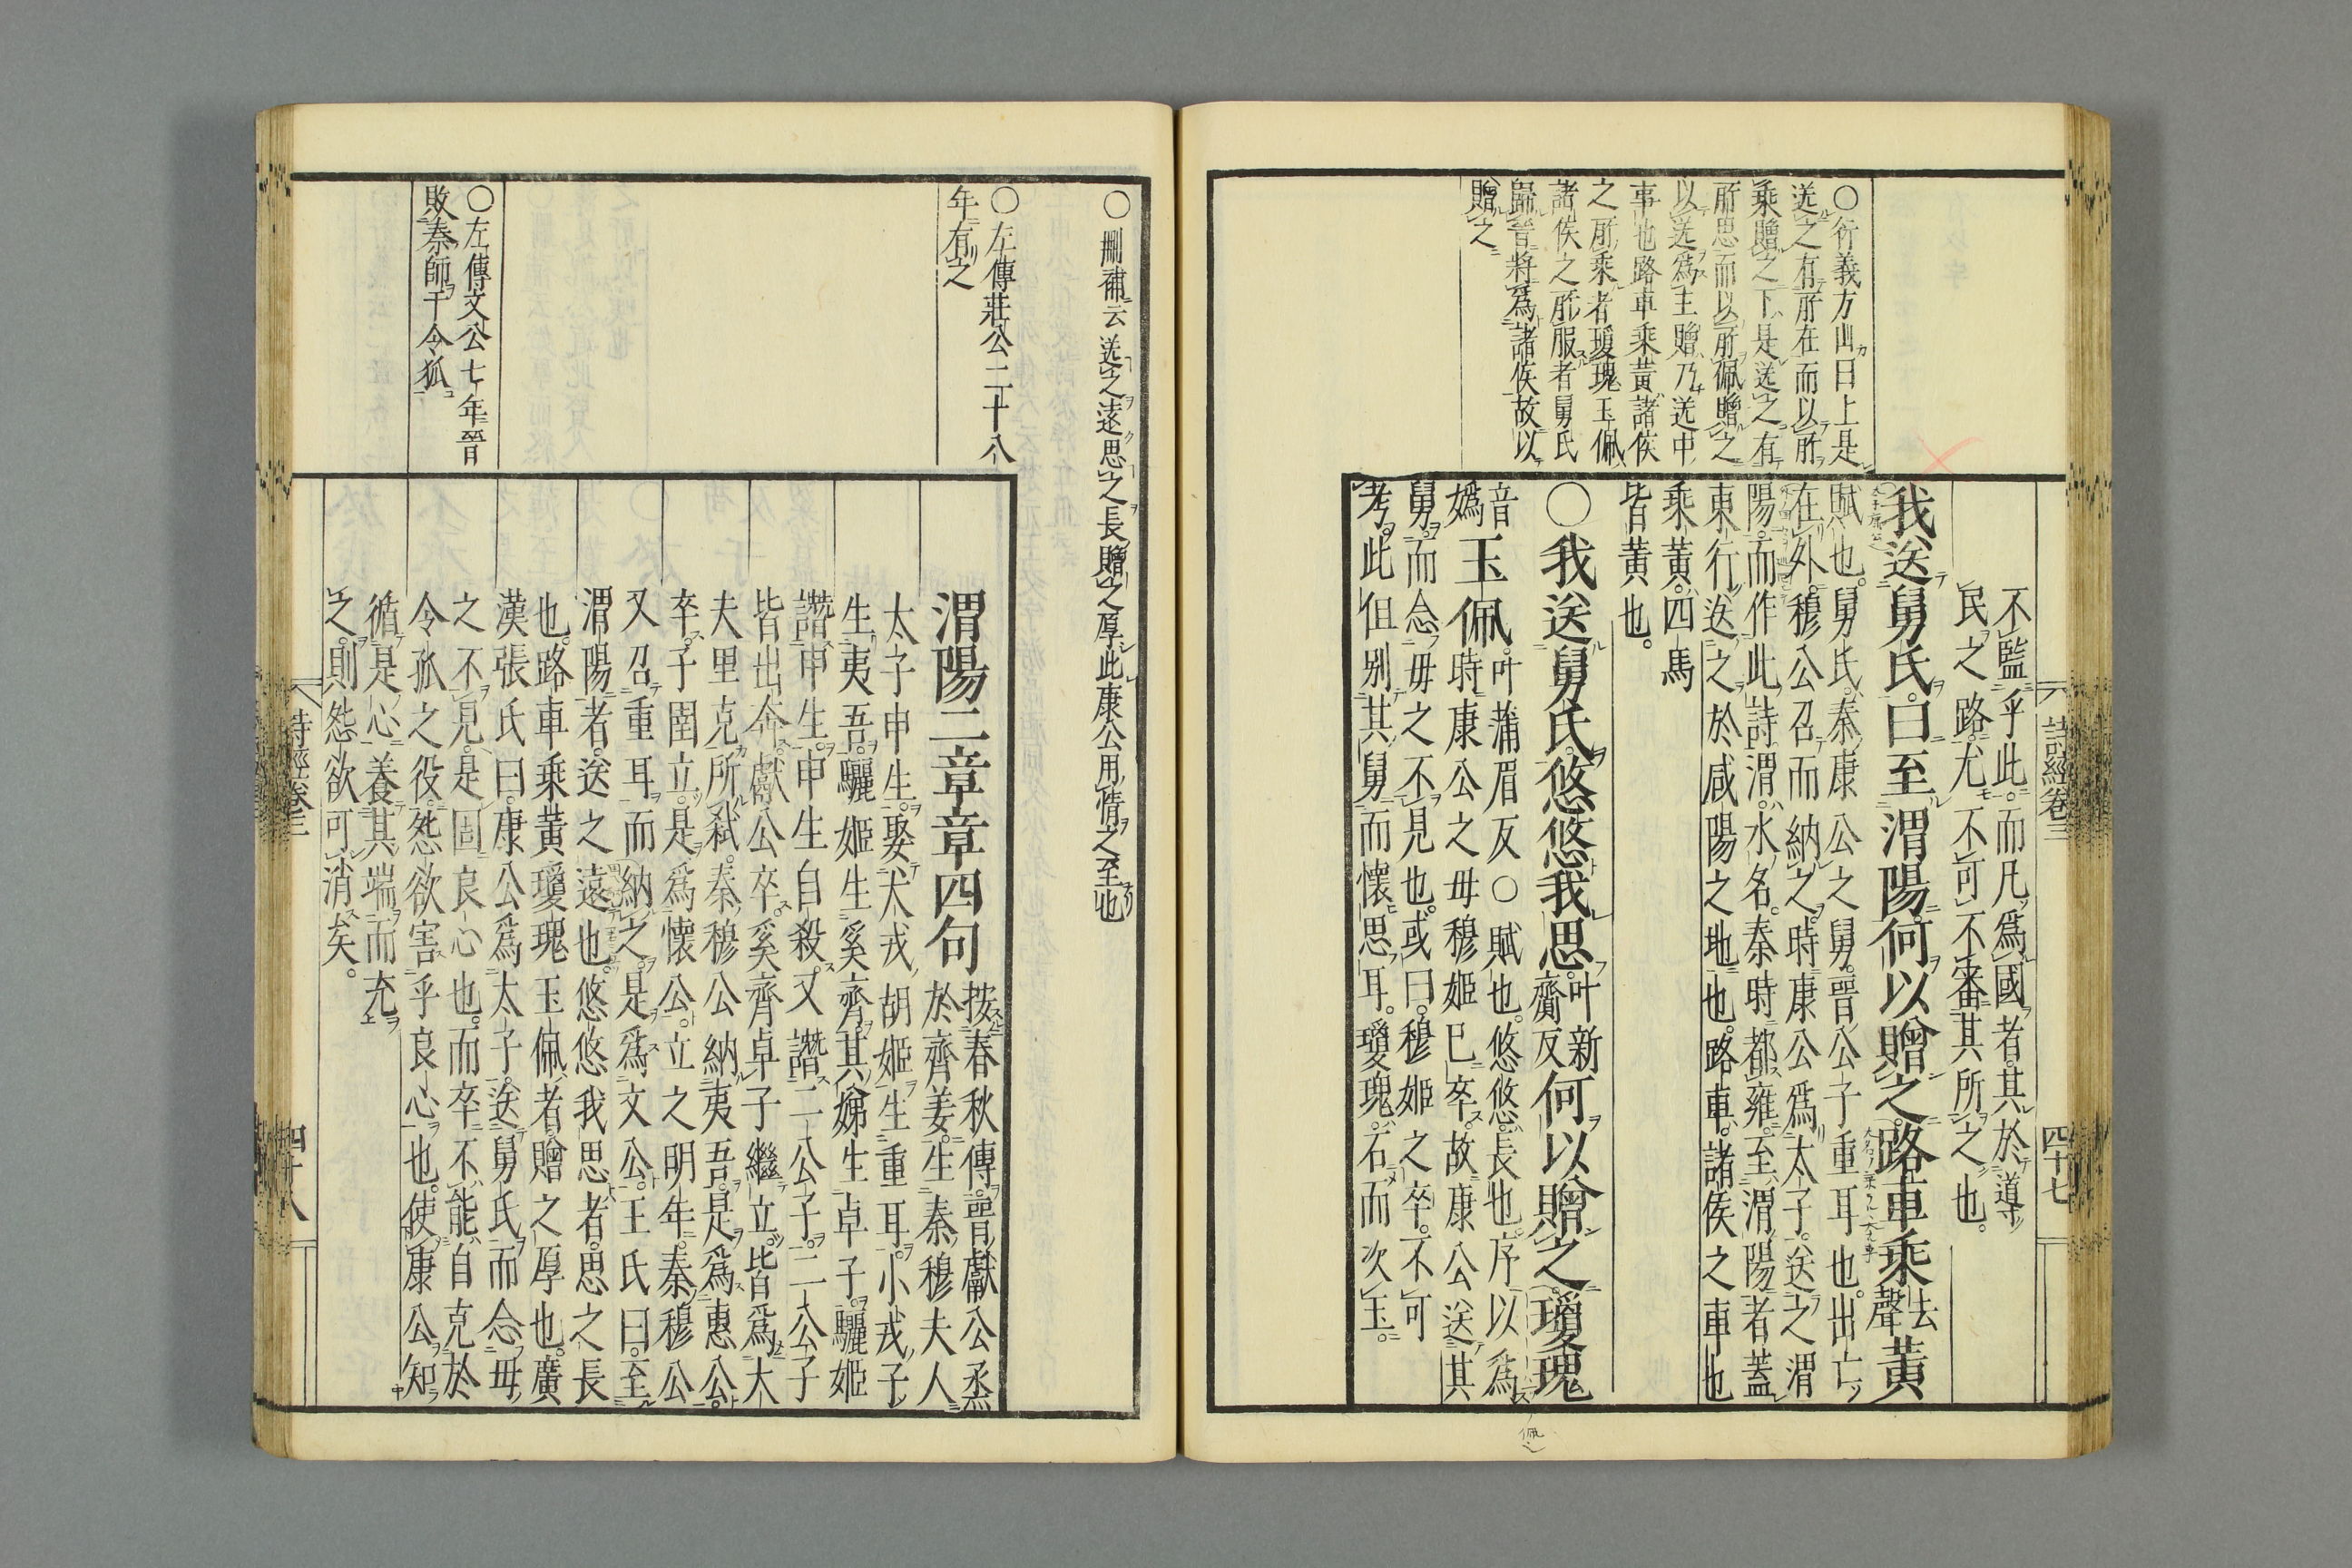 詩經卷三
四十七
○衍義方山曰上是
送之有所在而以所
乘贈之下是送之有
所思而以所佩贈之
以送爲主贈乃送中
事也路車乘黃諸侯
之所乘者瓊瑰玉佩
諸侯之所服者舅氏
歸晉將爲諸侯故以
贈之
不監乎此而凡爲國者其於導
民之路尤不可不審其所之也
我送舅氏曰至渭陽何以贈之路車乘去聲黃
賦也舅氏秦康公之舅晉公子重耳也出亡
在外穆公召而納之時康公爲太子送之渭
陽而作此詩渭水名秦時都雍至渭陽者蓋
東行送之於咸陽之地也路車諸侯之車也
乘黃四馬
皆黃也
○我送舅氏悠悠我思叶新齎反何以贈之瓊瑰
玉佩
音嬀
叶蒲眉反○賦也悠悠長也序以爲
時康公之母穆姬已卒故康公送其
舅而念母之不見也或曰穆姬之卒不可
考此但別其舅而懷思耳瓊瑰石而次玉
○刪補云送之遠思之長贈之厚此康公用情之至也
○左傳莊公二十八
年有之
○左傳文公七年晉
敗秦師于令狐
渭陽二章章四句
按春秋傳晉獻公烝
於齊姜生秦穆夫人
太子申生娶犬戎胡姬生重耳小戎子
生夷吾驪姬生奚齊其娣生卓子驪姬
譖申生申生自殺又譖二公子二公子
皆出奔獻公卒奚齊卓子繼立皆爲大
夫里克所弒秦穆公納夷吾是爲惠公
卒子圉立是爲懷公立之明年秦穆公
又召重耳而納之是爲文公王氏曰至
渭陽者送之遠也悠悠我思者思之長
也路車乘黃瓊瑰玉佩者贈之厚也廣
漢張氏曰康公爲太子送舅氏而念母
之不見是固良心也而卒不能自克於
令狐之役怨欲害乎良心也使康公知
循是心養其端而充
之則怨欲可消矣
詩經卷三
四十八